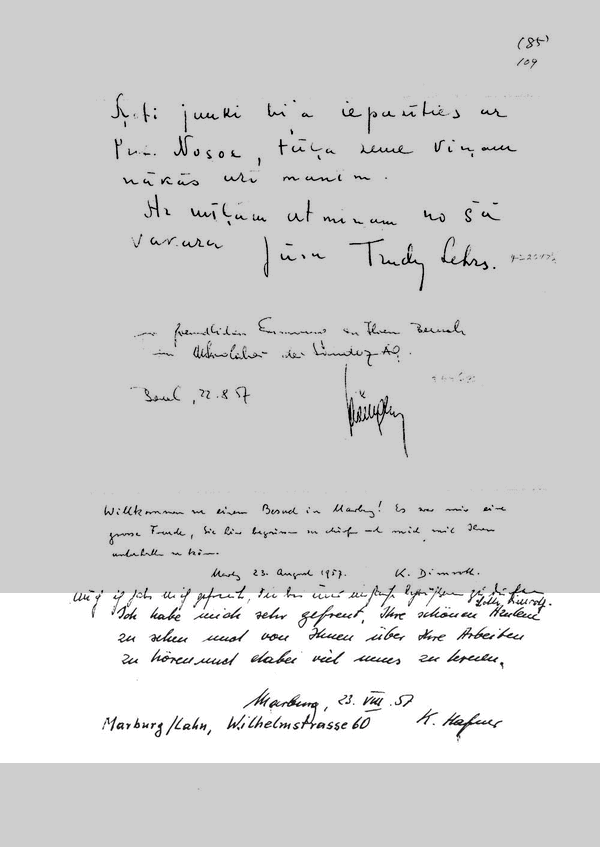 (85)
109
Ļoti jauki bija iepazīties ar
Nozoe, tūļa seme Viņam
nākās uzi manim.
Ar mīļām atmiņām no šā
vakara Jūsu Trudy Lehrs.
freundlichen Erinnerung an Ihren Besuch
im der Sandoz AG.
Basel, 22.8.57
Willkommen zu einem Besuch in Marburg! Es war mir eine
grosse Freude, Sie hier begrüssen zu dürfen und mich mit Ihnen
unterhalten zu können.
Marbg 23. August 1957. K. Dimroth.
Auch ich habe mich gefreut, Sie bei uns begrüßen zu dürfen
Ich habe mich sehr gefreut, Ihre schönen
zu sehen und von Ihnen über Ihre Arbeiten
zu hören und dabei viel neues zu lernen.
Marburg, 23. VIII. 57
Marburg/Lahn, Wilhelmstrasse 60 K. Hafner